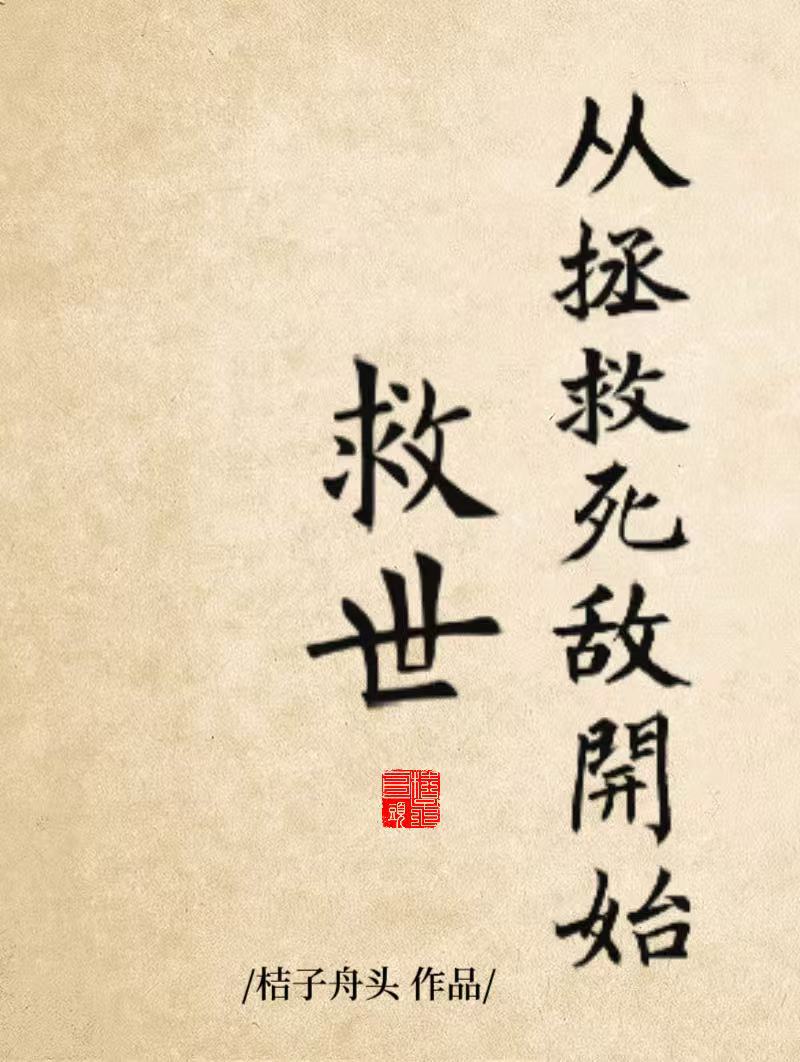 从拯救死敌開始
救世
/桔子舟头 作品/